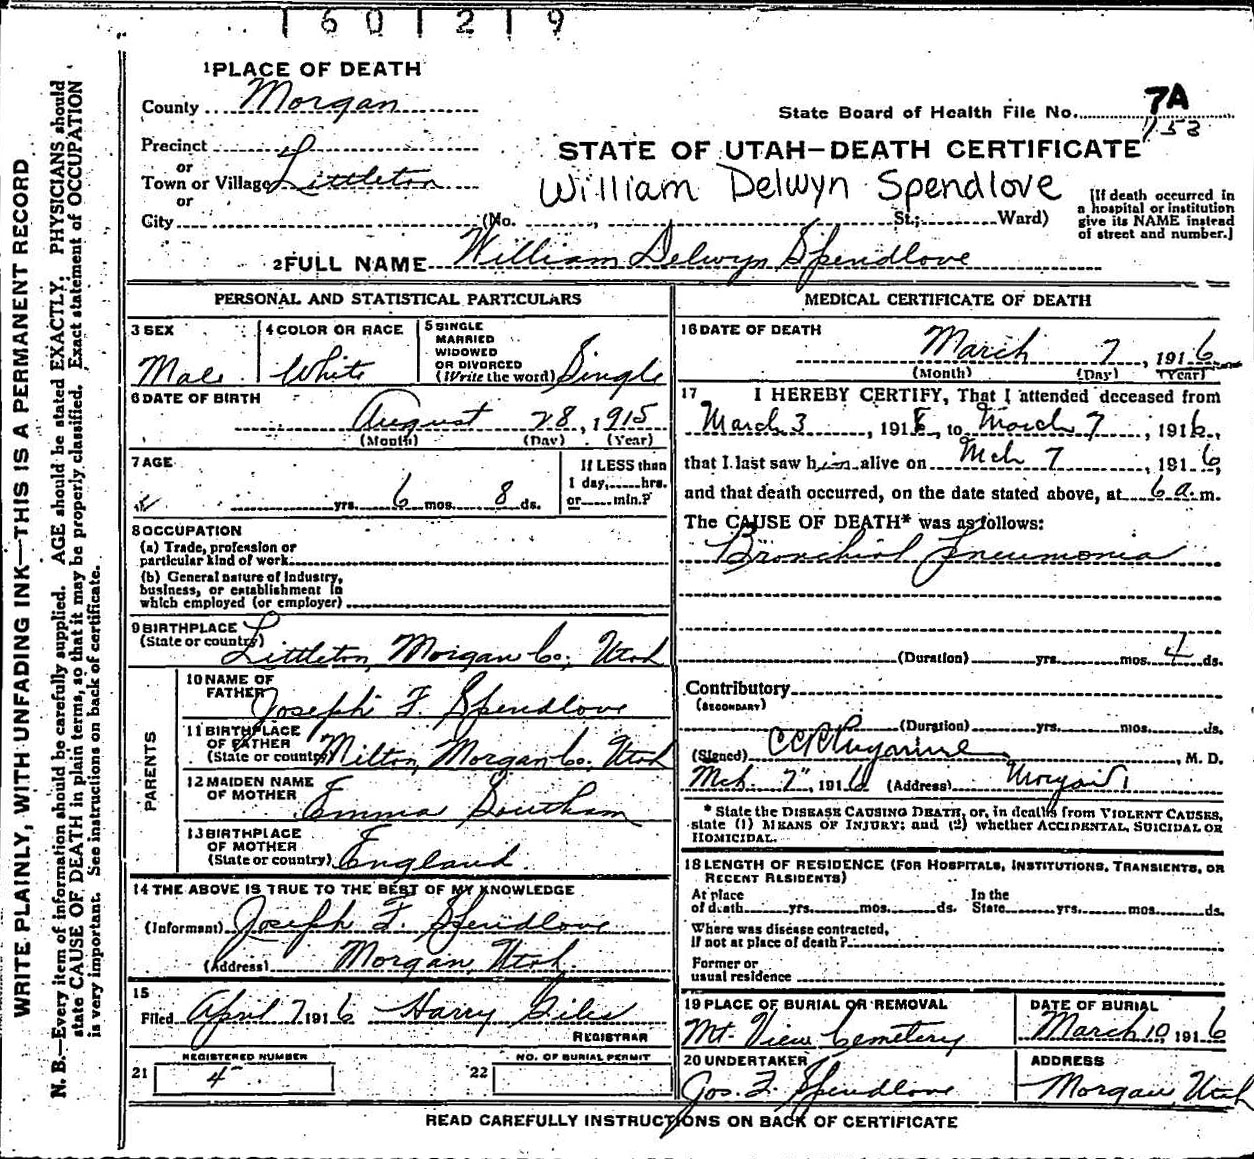 1 6 0 1 2 1 9
1 PLACE OF DEATH
County Morgan
State Board of Health File No. 7A
153
Precinct
or
Town or Village Littleton
or
City (No. , St.; Ward)
STATE OF UTAH—DEATH CERTIFICATE
William Delwyn Spendlove
[If death occurred in
a hospital or institution
give its NAME instead
of street and number.]
2 FULL NAME William Delwyn Spendlove
WRITE PLAINLY, WITH UNFADING INK—THIS IS A PERMANENT RECORD
N. B.—Every item of information should be carefully supplied. AGE should be stated EXACTLY. PHYSICIANS should
state CAUSE OF DEATH in plain terms, so that it may be properly classified. Exact statement of OCCUPATION
is very important. See instructions on back of certificate.
PERSONAL AND STATISTICAL PARTICULARS
3 SEX
Male
4 COLOR OR RACE
White
5 SINGLE
MARRIED
WIDOWED
OR DIVORCED
(Write the word) Single
6 DATE OF BIRTH
August 28, 1915
(Month) (Day) (Year)
7 AGE
yrs. 6 mos. 8 ds.
If LESS than
1 day, hrs.
or min.?
8 OCCUPATION
(a) Trade, profession or
particular kind of work
(b) General nature of industry,
business, or establishment in
which employed (or employer)
9 BIRTHPLACE
(State or country)
Littleton, Morgan Co, Utah
PARENTS
10 NAME OF
FATHER
Joseph F. Spendlove
11 BIRTHPLACE
OF FATHER
(State or country) Milton, Morgan Co. Utah
12 MAIDEN NAME
OF MOTHER
Emma Southam
13 BIRTHPLACE
OF MOTHER
(State or country) England
14 THE ABOVE IS TRUE TO THE BEST OF MY KNOWLEDGE
(Informant) Joseph F. Spendlove
(Address) Morgan, Utah
15
Filed April 7 1916 Harry Giles
REGISTRAR
REGISTERED NUMBER
21 4
NO. OF BURIAL PERMIT
22
MEDICAL CERTIFICATE OF DEATH
16 DATE OF DEATH
March 7, 1916
(Month) (Day) (Year)
17 I HEREBY CERTIFY, That I attended deceased from
March 3, 1916, to March 7, 1916,
that I last saw him alive on Mch 7, 1916,
and that death occurred, on the date stated above, at 6 a.m.
The CAUSE OF DEATH* was as follows:
Bronchial Pneumonia
(Duration) yrs. mos. 4 ds.
Contributory
(SECONDARY)
(Duration) yrs. mos. ds.
(Signed) , M. D.
Mch. 7", 1916 (Address) Morgan
* State the DISEASE CAUSING DEATH, or, in deaths from VIOLENT CAUSES,
state (1) MEANS OF INJURY; and (2) whether ACCIDENTAL, SUICIDAL OR
HOMICIDAL.
18 LENGTH OF RESIDENCE (FOR HOSPITALS, INSTITUTIONS, TRANSIENTS, OR
RECENT RESIDENTS)
At place
of death yrs. mos. ds.
In the
State yrs. mos. ds.
Where was disease contracted,
if not at place of death?
Former or
usual residence
19 PLACE OF BURIAL OR REMOVAL
Mt. View Cemetery
DATE OF BURIAL
March 10, 1916
20 UNDERTAKER
Jos. F. Spendlove
ADDRESS
Morgan, Utah
READ CAREFULLY INSTRUCTIONS ON BACK OF CERTIFICATE